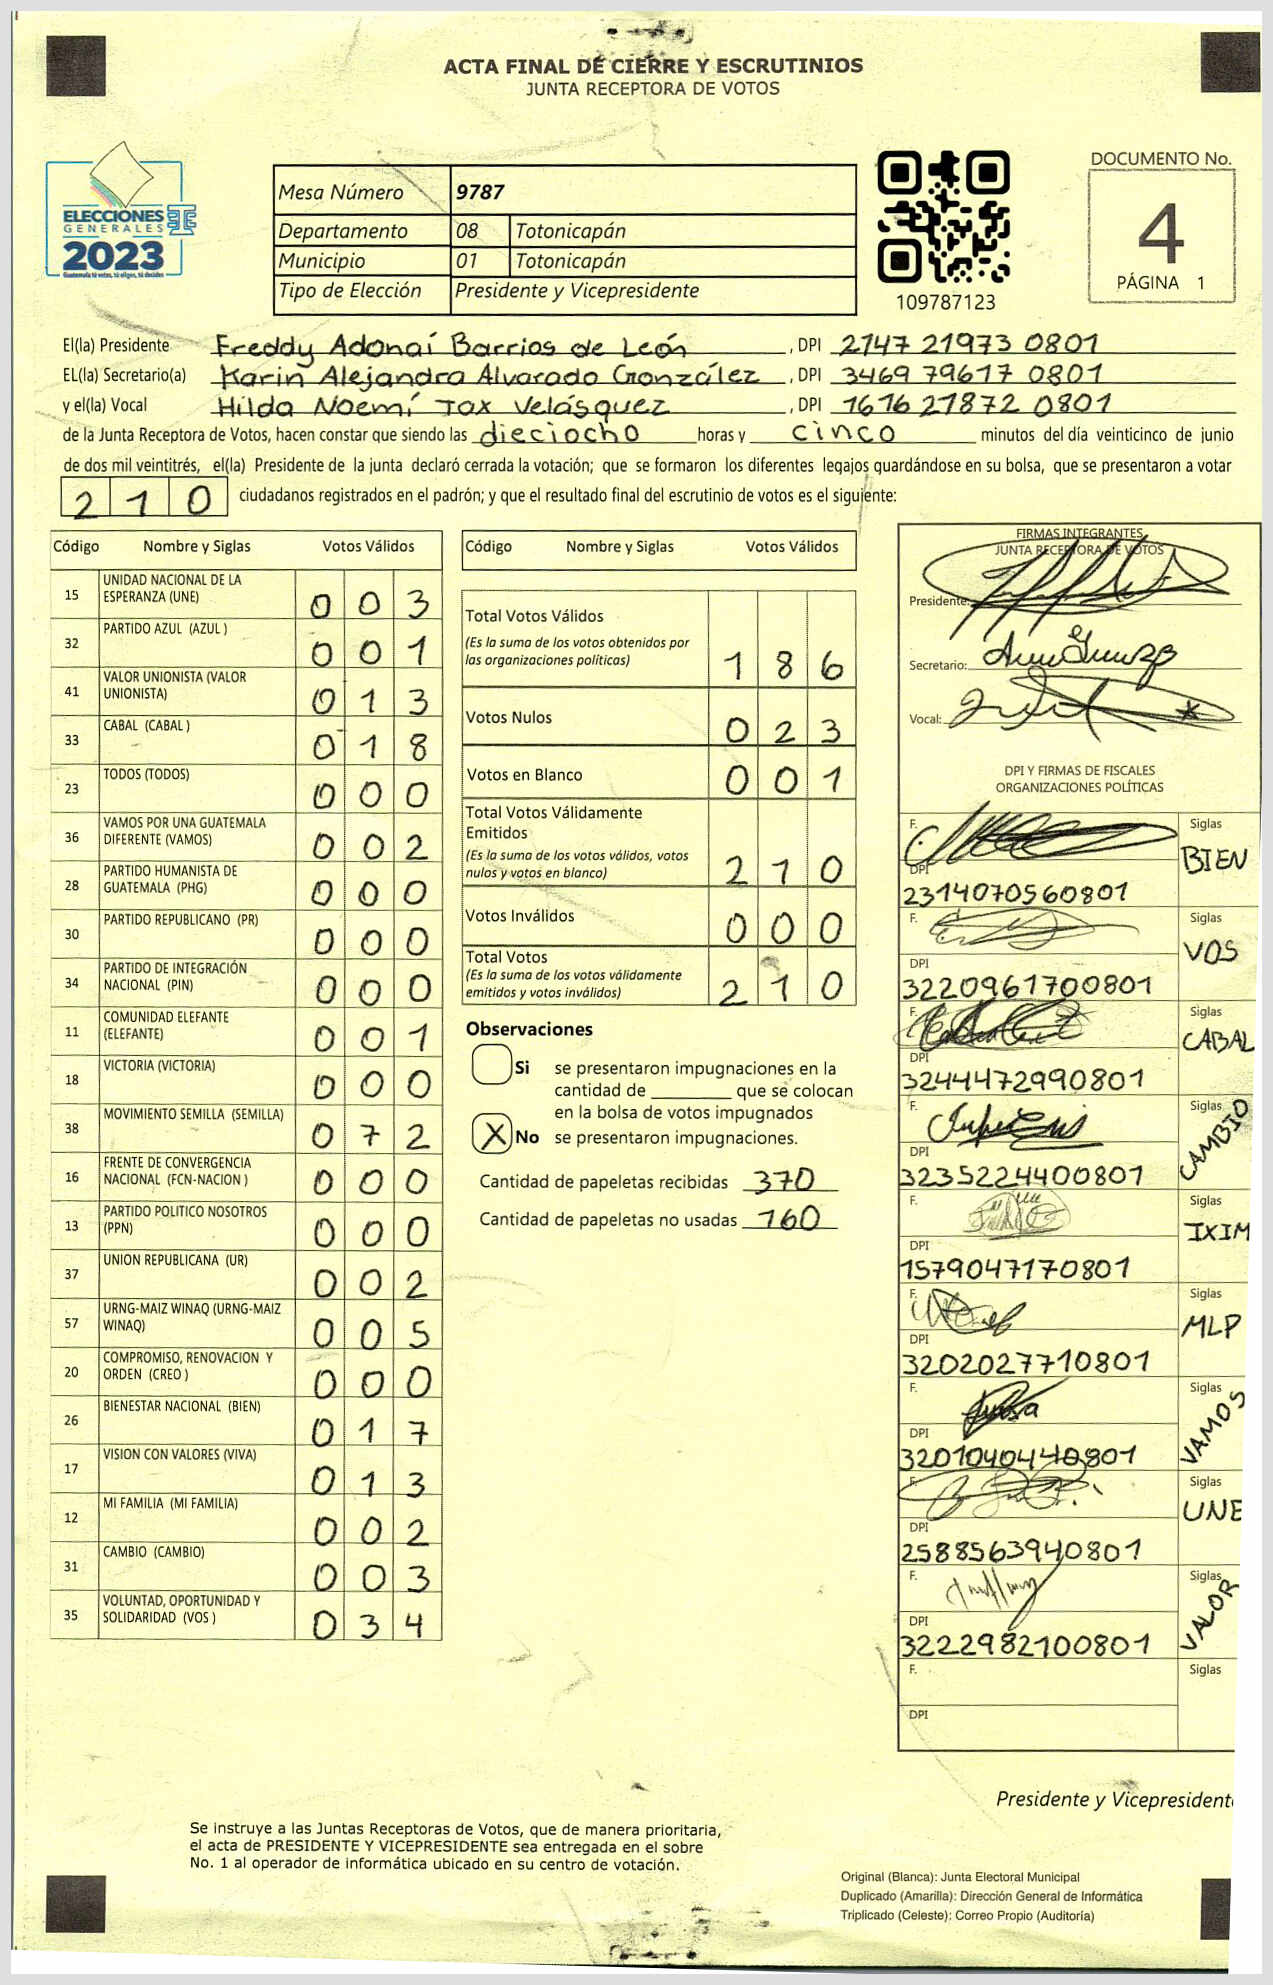 ACTA FINAL DE CIERRE Y ESCRUTINIOS
JUNTA RECEPTORA DE VOTOS
ELECCIONES
GENERALES
2023
Guatemala tú votas, tú eliges, tú decides
Mesa Número 9787
Departamento 08 Totonicapán
Municipio 01 Totonicapán
Tipo de Elección Presidente y Vicepresidente
109787123
DOCUMENTO No.
4
PÁGINA 1
El(la) Presidente Freddy Adonaí Barrios de León, DPI 2747 21973 0801
EL(la) Secretario(a) Karin Alejandra Alvarado González, DPI 3469 79617 0801
y el(la) Vocal Hilda Noemí Tax Velásquez, DPI 1616 21872 0801
de la Junta Receptora de Votos, hacen constar que siendo las dieciocho horas y cinco minutos del día veinticinco de junio
de dos mil veintitrés, el(la) Presidente de la junta declaró cerrada la votación; que se formaron los diferentes legajos guardándose en su bolsa, que se presentaron a votar
210 ciudadanos registrados en el padrón; y que el resultado final del escrutinio de votos es el siguiente:
Código Nombre y Siglas Votos Válidos
15 UNIDAD NACIONAL DE LA ESPERANZA (UNE) 003
32 PARTIDO AZUL (AZUL ) 001
41 VALOR UNIONISTA (VALOR UNIONISTA) 013
33 CABAL (CABAL ) 018
23 TODOS (TODOS) 000
36 VAMOS POR UNA GUATEMALA DIFERENTE (VAMOS) 002
28 PARTIDO HUMANISTA DE GUATEMALA (PHG) 000
30 PARTIDO REPUBLICANO (PR) 000
34 PARTIDO DE INTEGRACIÓN NACIONAL (PIN) 000
11 COMUNIDAD ELEFANTE (ELEFANTE) 001
18 VICTORIA (VICTORIA) 000
38 MOVIMIENTO SEMILLA (SEMILLA) 072
16 FRENTE DE CONVERGENCIA NACIONAL (FCN-NACION ) 000
13 PARTIDO POLITICO NOSOTROS (PPN) 000
37 UNION REPUBLICANA (UR) 002
57 URNG-MAIZ WINAQ (URNG-MAIZ WINAQ) 005
20 COMPROMISO, RENOVACION Y ORDEN (CREO ) 000
26 BIENESTAR NACIONAL (BIEN) 017
17 VISION CON VALORES (VIVA) 013
12 MI FAMILIA (MI FAMILIA) 002
31 CAMBIO (CAMBIO) 003
35 VOLUNTAD, OPORTUNIDAD Y SOLIDARIDAD (VOS ) 034
Código Nombre y Siglas Votos Válidos
Total Votos Válidos
(Es la suma de los votos obtenidos por
las organizaciones políticas) 186
Votos Nulos 023
Votos en Blanco 001
Total Votos Válidamente
Emitidos
(Es la suma de los votos válidos, votos
nulos y votos en blanco) 210
Votos Inválidos 000
Total Votos
(Es la suma de los votos válidamente
emitidos y votos inválidos) 210
Observaciones
Si se presentaron impugnaciones en la
cantidad de ________ que se colocan
en la bolsa de votos impugnados
X No se presentaron impugnaciones.
Cantidad de papeletas recibidas 370
Cantidad de papeletas no usadas 160
FIRMAS INTEGRANTES
JUNTA RECEPTORA DE VOTOS
Presidente:
Secretario:
Vocal:
DPI Y FIRMAS DE FISCALES
ORGANIZACIONES POLÍTICAS
F. Siglas
BIEN
DPI
2314070560801
F. Siglas
VOS
DPI
3220961700801
F. Siglas
CABAL
DPI
3244472990801
F. Siglas
CAMBIO
DPI
3235224400801
F. Siglas
IXIM
DPI
1579047170801
F. Siglas
MLP
DPI
3202027710801
F. Siglas
VAMOS
DPI
3201040440801
F. Siglas
UNE
DPI
2588563940801
F. Siglas
VALOR
DPI
3222982100801
F. Siglas
DPI
Presidente y Vicepresident
Se instruye a las Juntas Receptoras de Votos, que de manera prioritaria,
el acta de PRESIDENTE Y VICEPRESIDENTE sea entregada en el sobre
No. 1 al operador de informática ubicado en su centro de votación.
Original (Blanca): Junta Electoral Municipal
Duplicado (Amarilla): Dirección General de Informática
Triplicado (Celeste): Correo Propio (Auditoría)